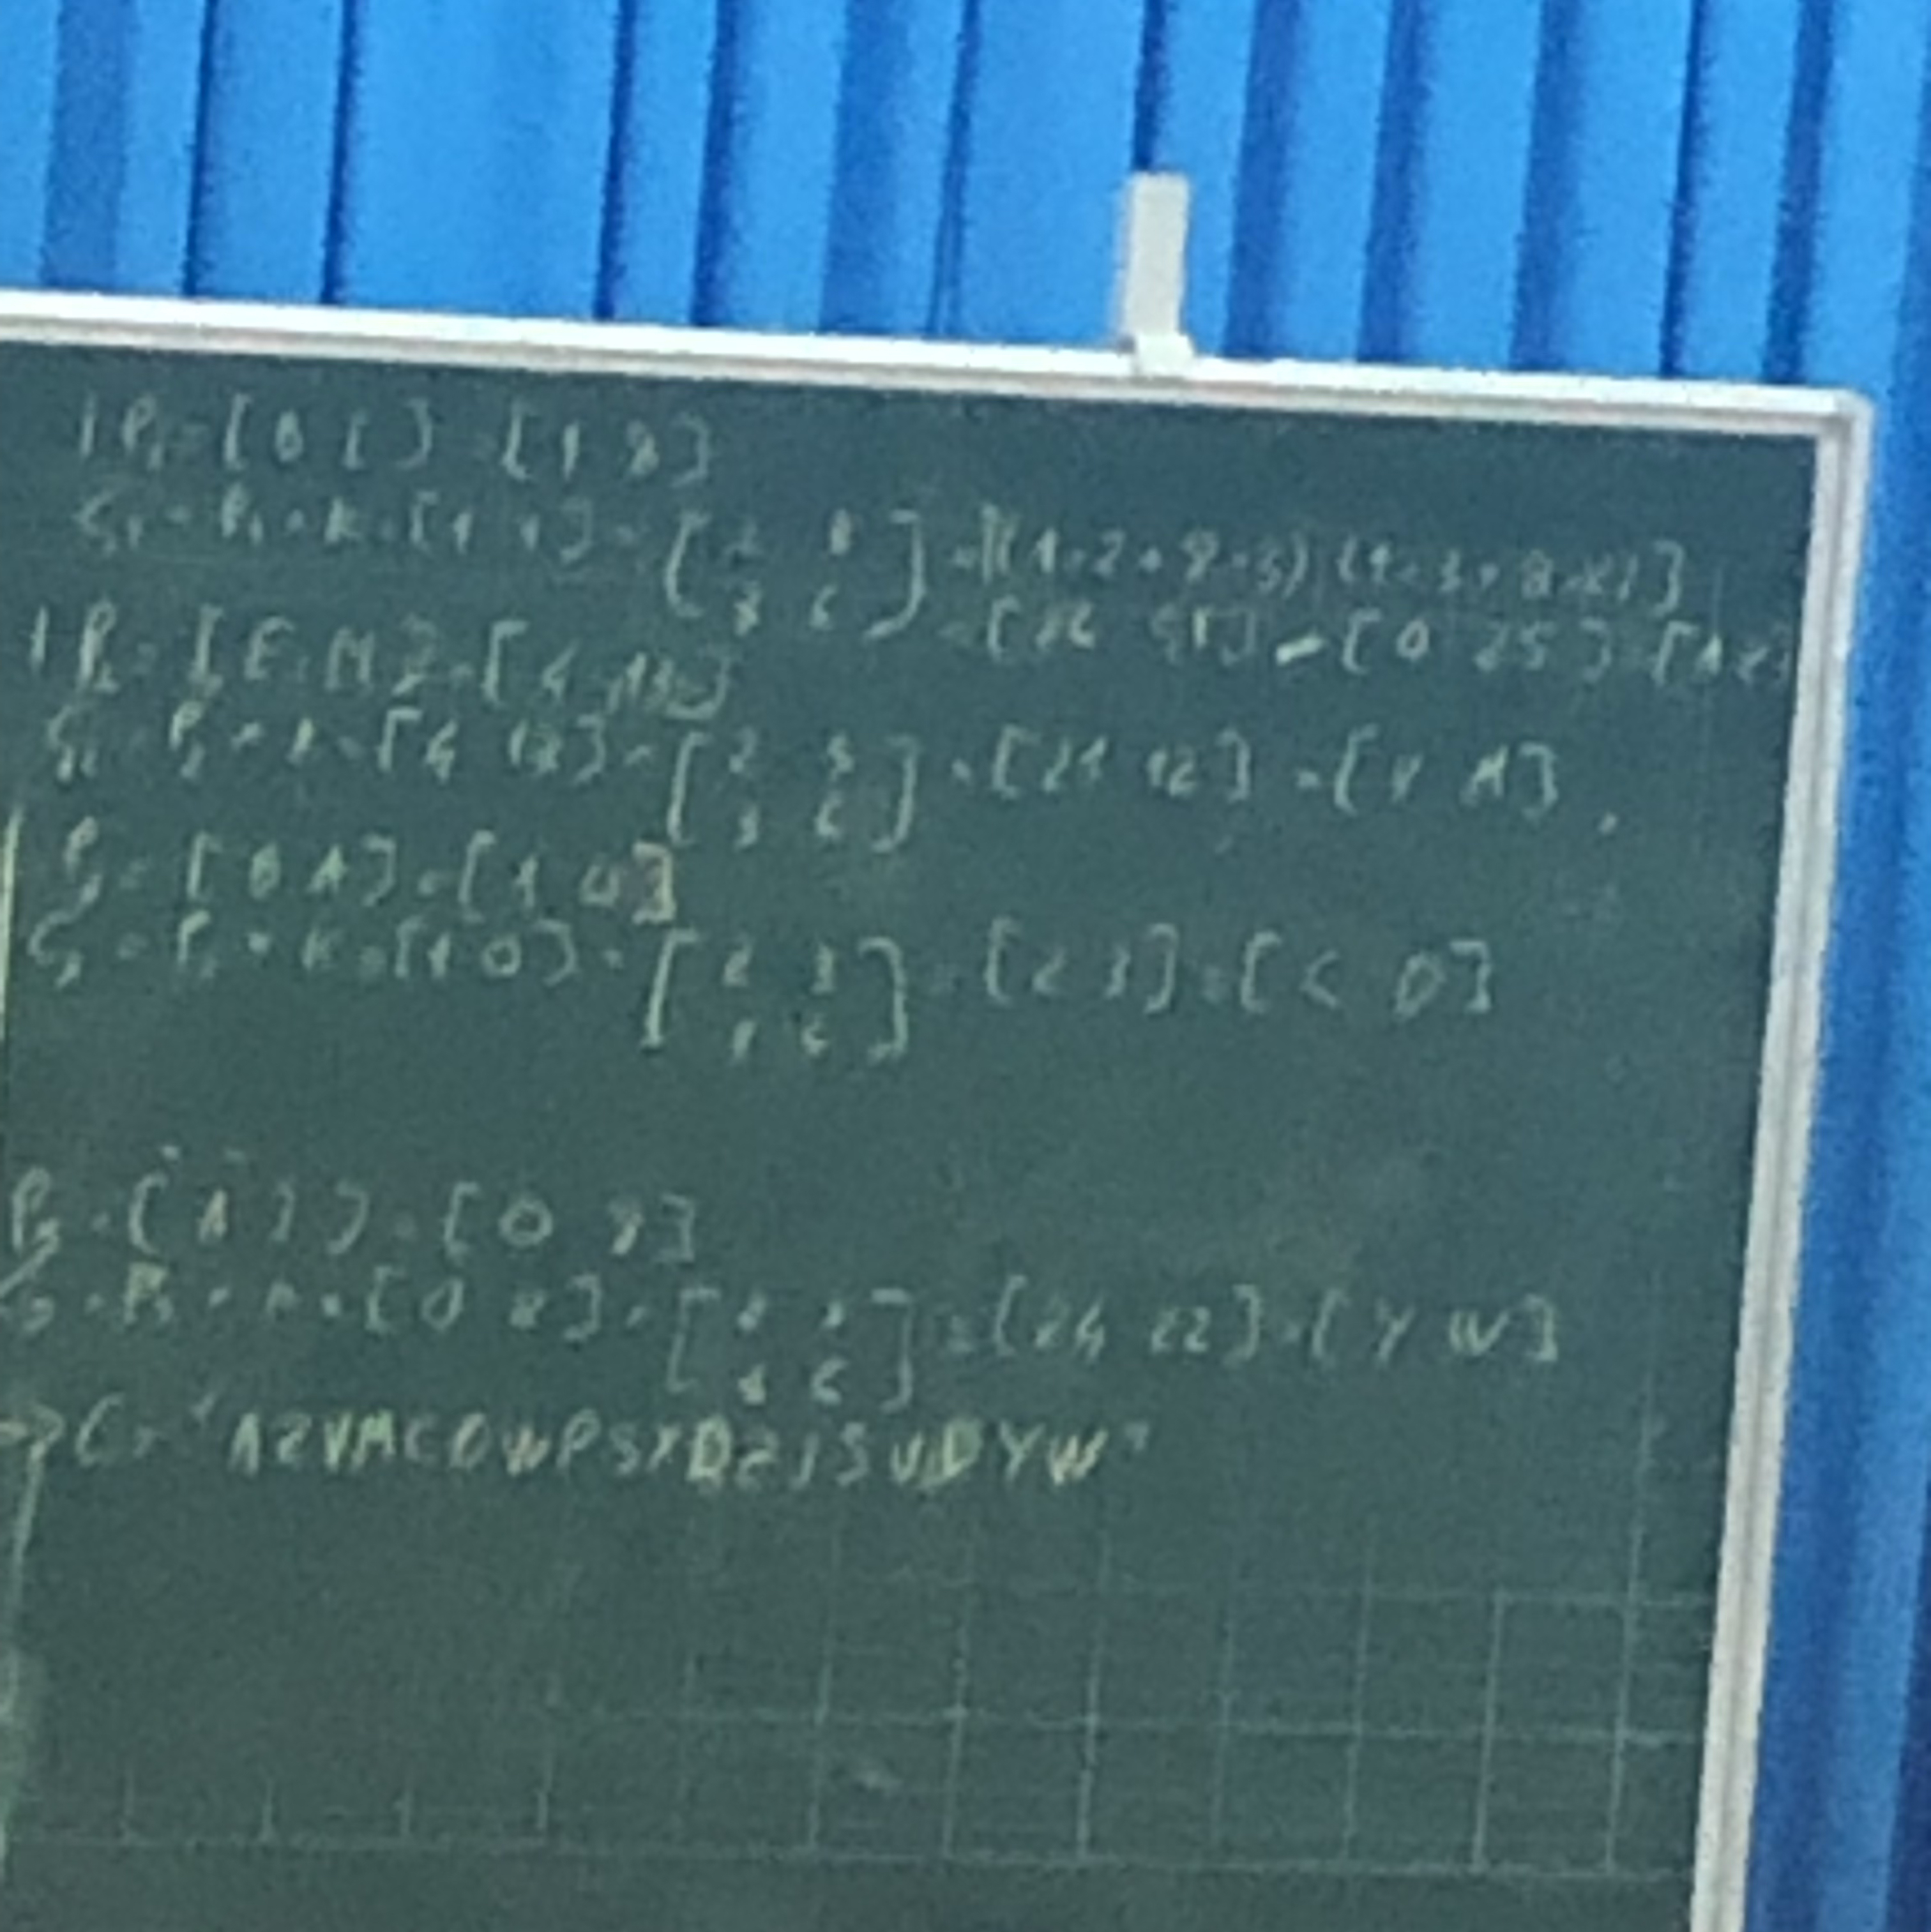 P₁ = [B I] = [1 8]
C₁ = P₁ * K = [1 8] * [2 3
3 6] = [(1.2 + 8.3) (1.3 + 8.6)]
= [26 51] = [0 25] = [A Z]
P₂ = [E N] = [4 13]
C₂ = P₂ * K = [4 13] * [2 3
3 6] = [21 12] = [V M]
P₃ = [B A] = [1 0]
C₃ = P₃ * K = [1 0] * [2 3
3 6] = [2 3] = [C D]
P₉ = [A I] = [0 8]
C₉ = P₉ * K = [0 8] * [2 3
3 6] = [24 22] = [Y W]
=> C = "AZVMCDWPSXDZJSVDYW"